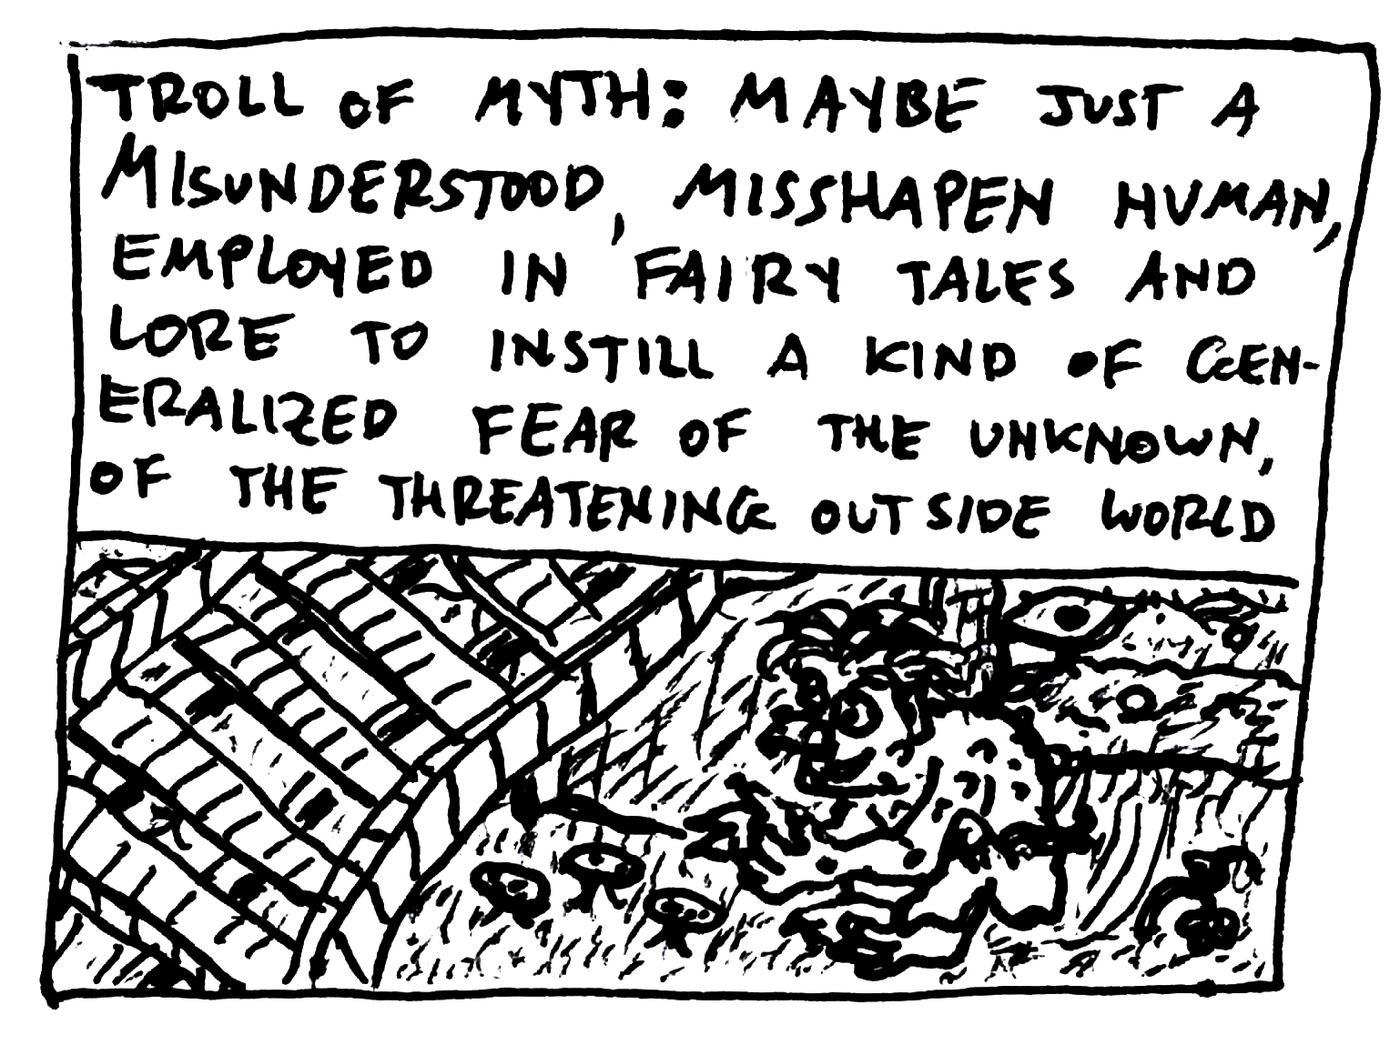 TROLL OF MYTH: MAYBE JUST A
MISUNDERSTOOD, MISSHAPEN HUMAN,
EMPLOYED IN FAIRY TALES AND
LORE TO INSTILL A KIND OF GEN-
ERALIZED FEAR OF THE UNKNOWN,
OF THE THREATENING OUTSIDE WORLD